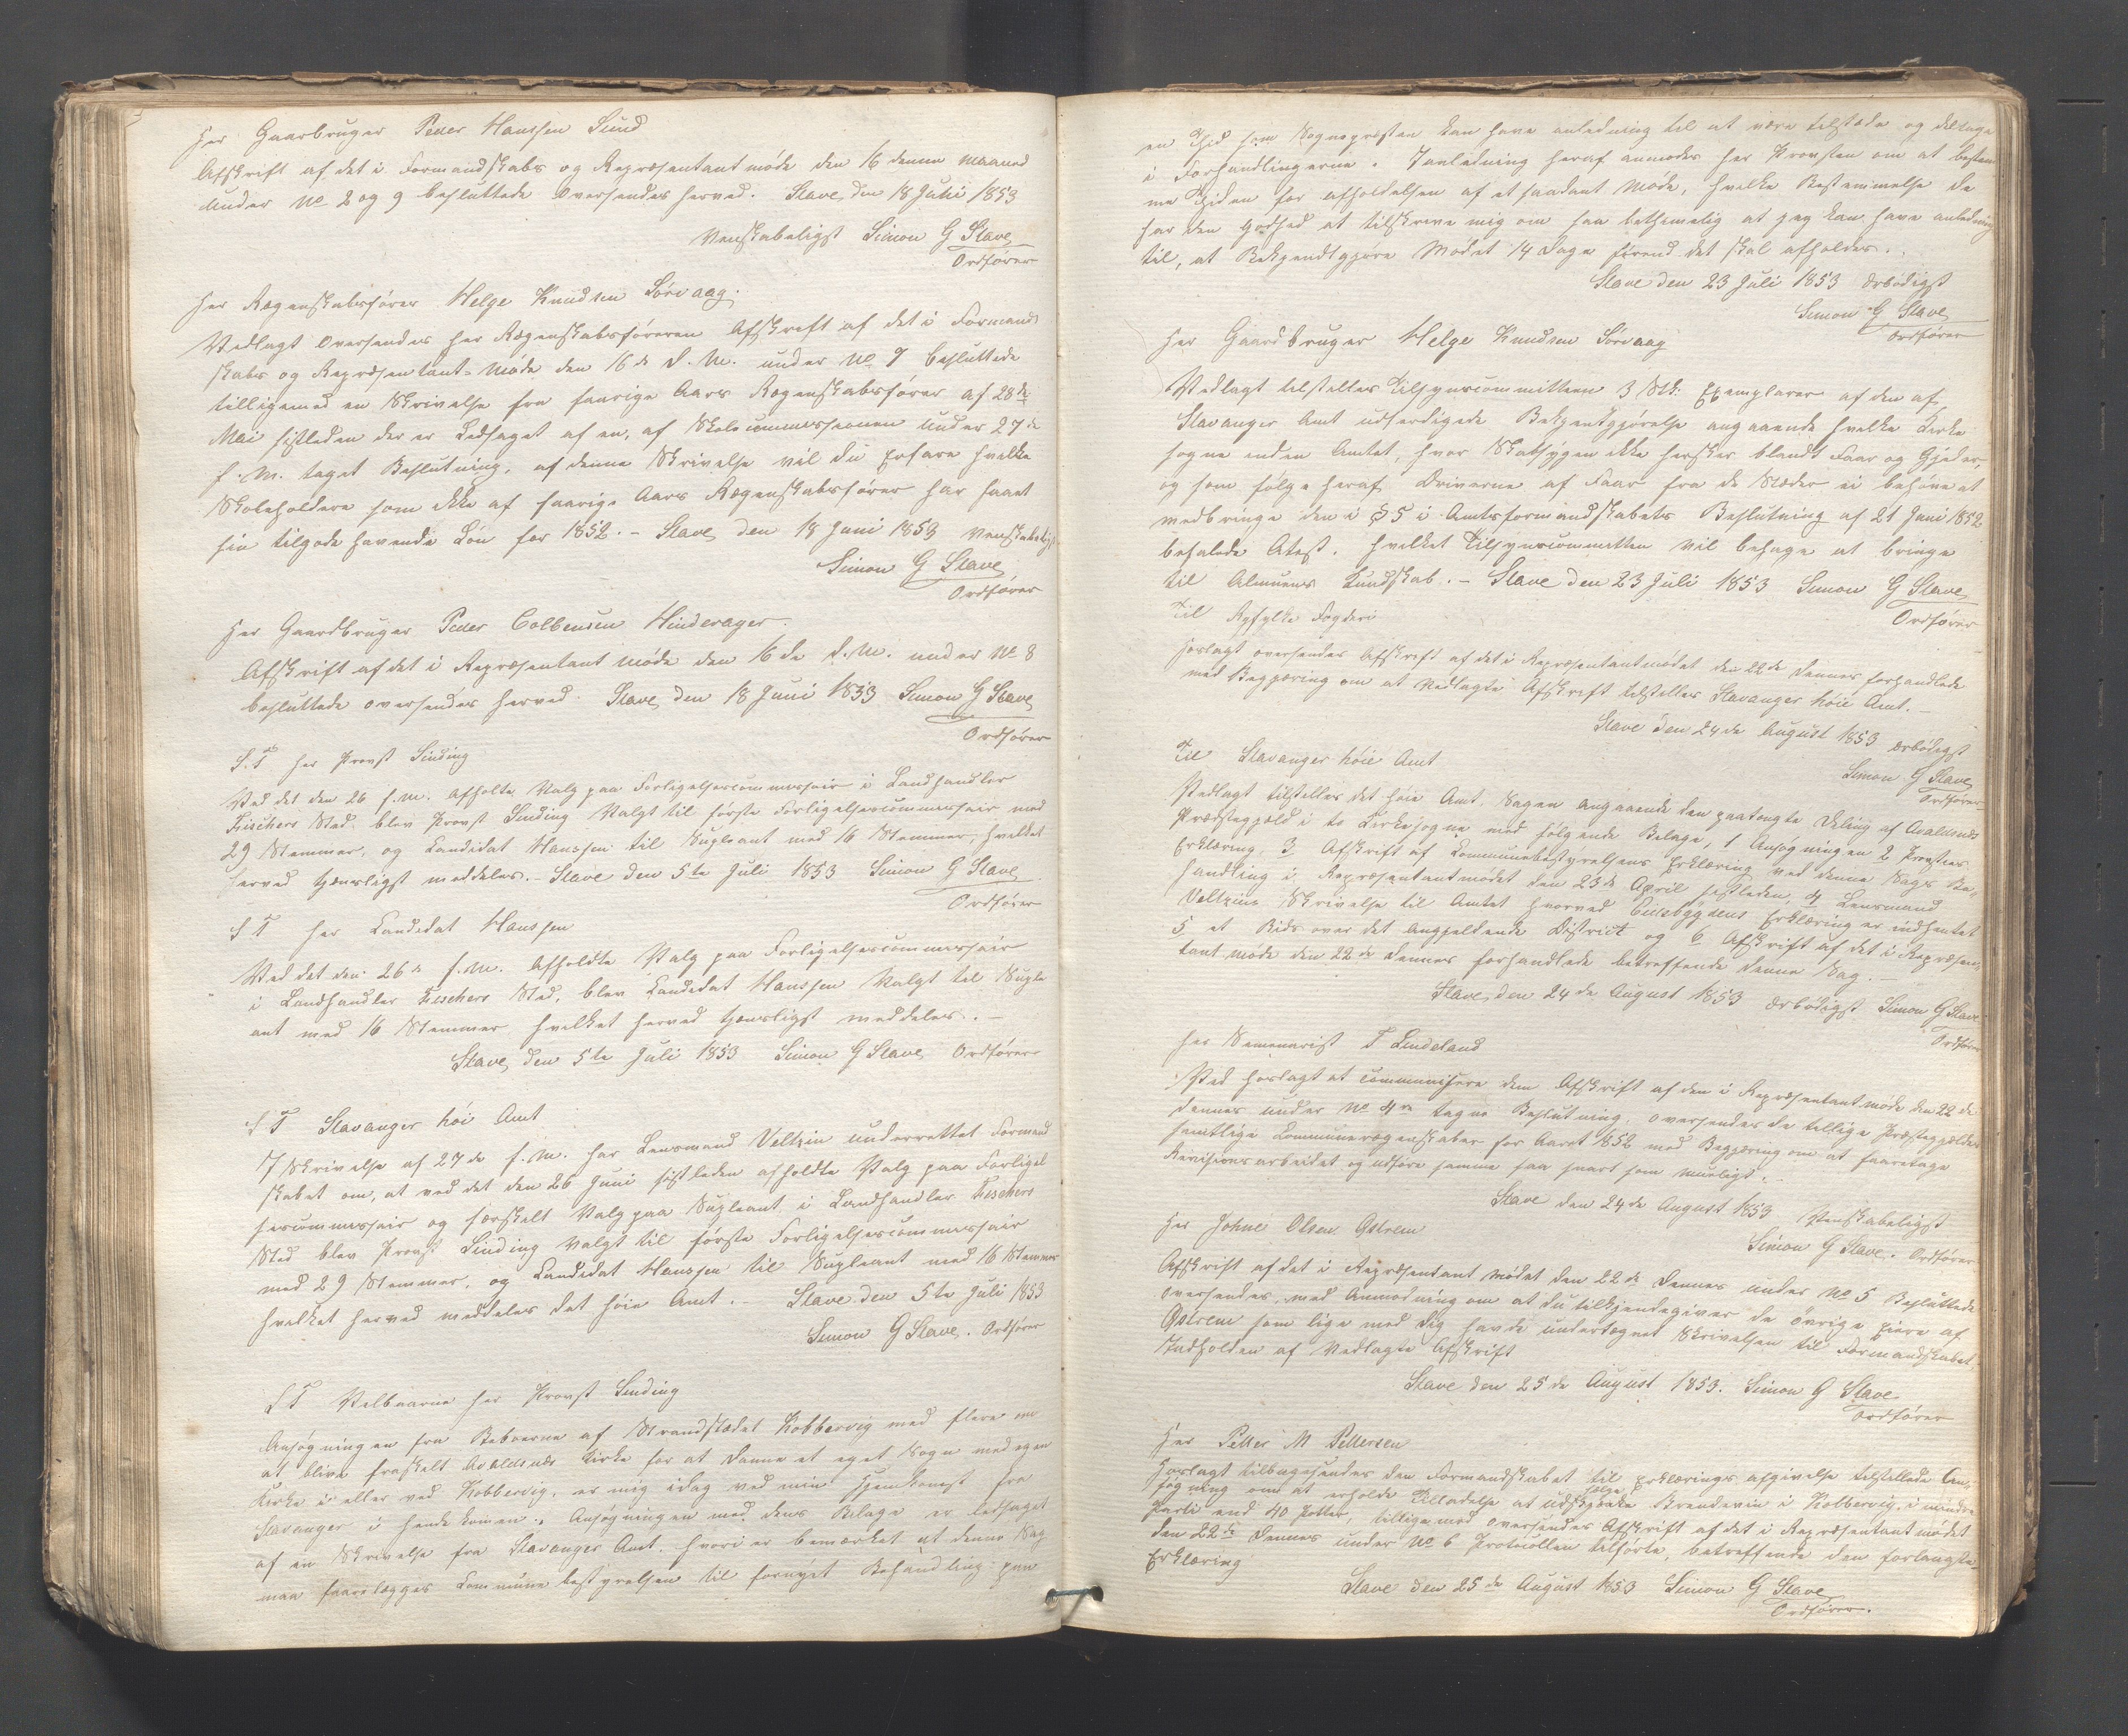 Her Gaarbruger Peder Hanssen Sund
Afskrift af det i Formandskabs og Repræsentantmøde den 16 denne maaned
under No 2 og 9 besluttede oversendes herved. Stave den 18 Juni 1853
Venskabeligst Simon G Stave
Ordfører
Her Rægenskabsfører Helge Knudsen Sørvaag.
Vedlagt oversendes Her Rægenskabsføreren Afskreft af det i Formand
skabs og Repræsentant-Møde den 16de d. M. under No 9 besluttede
tilligemed en Skrivelse fra forrige Aars Rægenskabsfører af 28de
Mai sistleden der er Ledsaget af en, af Skolecommissionen under 27de
f. M. taget Beslutning, af denne Skrivelse vil du Erfare hvilke
Skoleholdere som ikke af forrige Aars Rægenskabsfører har faaet
sin tilgode havende Løn for 1852. - Stave den 18 Juni 1853 Venskabeligst
Simon G Stave
Ordfører
Her Gaardbruger Peder Colbensen Hinderager.
Afskrift af det i Repræsentant møde den 16de d. M. under No 8
besluttede oversendes herved. Stave den 18 Juni 1853 Simon G Stave
Ordfører
S. T Her Provst Sinding
Ved det den 26 f. M. afholte Valg paa Forligelsescommissair i Landhandler
Fischers Sted blev Provst Sinding Valgt til første Forligelsescommissair med
29 Stemmer, og Candidat Hanssen til Supleant med 16 Stemmer, hvilket
herved tjenesligst meddeles. - Stave den 5te Juli 1853 Simon G Stave
Ordfører
S T Her Candidat Hanssen
Ved det den 26de f. M. afholdte Valg paa Forligelsescommissair
i Landhandler Fischers Sted, blev Candidat Hanssen Valgt til Suple
ant med 16 Stemmer hvilket herved tjenesligst meddeles. -
Stave den 5te Juli 1853 Simon G Stave Ordfører
S T Stavanger høi Amt
I Skrivelse af 27de f. M. har Lensmand Veltzin underrettet Formand
skabet om, at ved det den 26 Juni sistleden afholdte Valg paa Forligel
sescommissair og særskelt Valg paa Supleant i Landhandler Fischers
Sted blev Provst Sinding Valgt til første Forligelsescommissair
med 29 Stemmer, og Candidat Hanssen til Supleant med 16 Stemmer
hvilket herved meddeles det høie Amt. - Stave den 5te Juli 1853
Simon G Stave. Ordfører
S T Velbaarne Her Provst Sinding
Ansøgningen fra Beboerne af Strandstædet Kobbervig med flere om
at blive fraskelt Avaldsnes Kirke for at danne et eget Sogn med egen
Kirke i eller ved Kobbervig, er mig idag ved min Hjemkomst fra
Stavanger i hende kommen. Ansøgningen med dens Bilage er ledsaget
af en Skrivelse fra Stavanger Amt. hvori er bemærket at denne Sag
maa foorelægges Communebestyrelsen til fornyet Behandling paa
en Tid som Sognepresten kan have anledning til at være tilstæde og deltage
i Forhandlingerne. I anledning heraf anmodes Her Provsten om at bestem
me Tiden for afholdelsen af et saadant Møde, hvilke Bestemmelse de
har den Godhed at tilskrive mig om saa betimelig at jeg kan have anledning
til, at Bekjendtgjøre Mødet 14 Dage førend det skal afholdes.
Stave den 23 Juli 1853 ærbødigst
Simon G Stave
Ordfører
Her Gaardbruger Helge Knudsen Sørvaag
Vedlagt tilstelles Tilsynscommitteen 3 Stk: Exemplarer af den af
Stavanger Amt udferdigede Bekjentgjørelse angaaende hvilke Kirke
sogne inden Amtet, hvor Skabsygen ikke hersker blandt Faar og Gjeder,
og som følge heraf Driverne af Faar fra de Steder ei behøve at
medbringe den i § 5 i Amtsformandskabets Beslutning af 21 Juni 1852
befalede Atest. hvilket Tilsynscommitten vil behage at bringe
til Almuens Kundskab. - Stave den 23 Juli 1853 Simon G Stave
Ordfører
Til Ryfylke Fogderi
Hoslagt oversendes Afskreft af det i Repræsentantmødet den 22de dennes forhandlede
med Begjæring om at Vedlagte Afskrift tilstelles Stavanger høie Amt. -
Stave den 24de August 1853 ærbødigst
Simon G Stave
Ordfører
Til Stavanger høie Amt
Vedlagt tilstelles det høie Amt. Sagen angaaende den paatængte Deling af Avaldsnes
Præstegjeld i to Kirkesogne med følgende Belage, 1 Ansøgningen 2 Provstens
Erklæring, 3 Afskrift af Communebestyrelsens Erklæring ved denne Sags Be-
handling i Repræsentantmødet den 23de April sistleden, 4 Lensmand
Veltzins Skrivelse til Amtet hvorved Eiesbygdens Erklæring er indhentet
5 et Rids over det Angjeldende District og 6 Afskrift af det i Repræsen-
tant møde den 22de dennes forhandlede betreffende denne Sag.
Stave den 24de August 1853 Ærbødigst Simon G Stave
Ordfører
Her Semenarist T Lindeland
Ved Hoslagt at communisere dem Afskrift af den i Repræsentantmøde den 22de
dennes under No 4re tagne Beslutning, oversendes de tillige Præstegjeldets
samtlige Communerægenskaber for Aaret 1852 med Begjæring om at foortage
Revisionsarbeidet og udføre samme saa snart som mueligt.
Stave den 24de August 1853 Venskabeligst
Simon G Stave. Ordfører
Her Johne Olsen Østrem
Afskrift af det i Repræsentant mødet den 22de dennes under No 5 Besluttede
oversendes, med Anmodning om at du tilkjendegiver de øvrige Eiere af
Østrem som lige med dig havde undertegnet Skrivelsen til Formandskabet,
Indholden af Vedlagte Afskrift
Stave den 25de August 1853. Simon G Stave
Ordfører
Her Petter M Pettersen
Hoslagt tilbagesendes den Formandskabet til Erklærings afgivelse tilstellede An-
søgning om at erholde Tilladelse at udskjænke Brendevin i Kobbervig, i mindre
Parti end 40 Potter, tilligemed oversendes Afskrift af det i Repræsentant mødet
den 22de dennes under No 6 Protocollen tilførte, betreffende den forlangte
Erklæring
Stave den 25de August 1853 Simon G Stave
Ordfører.